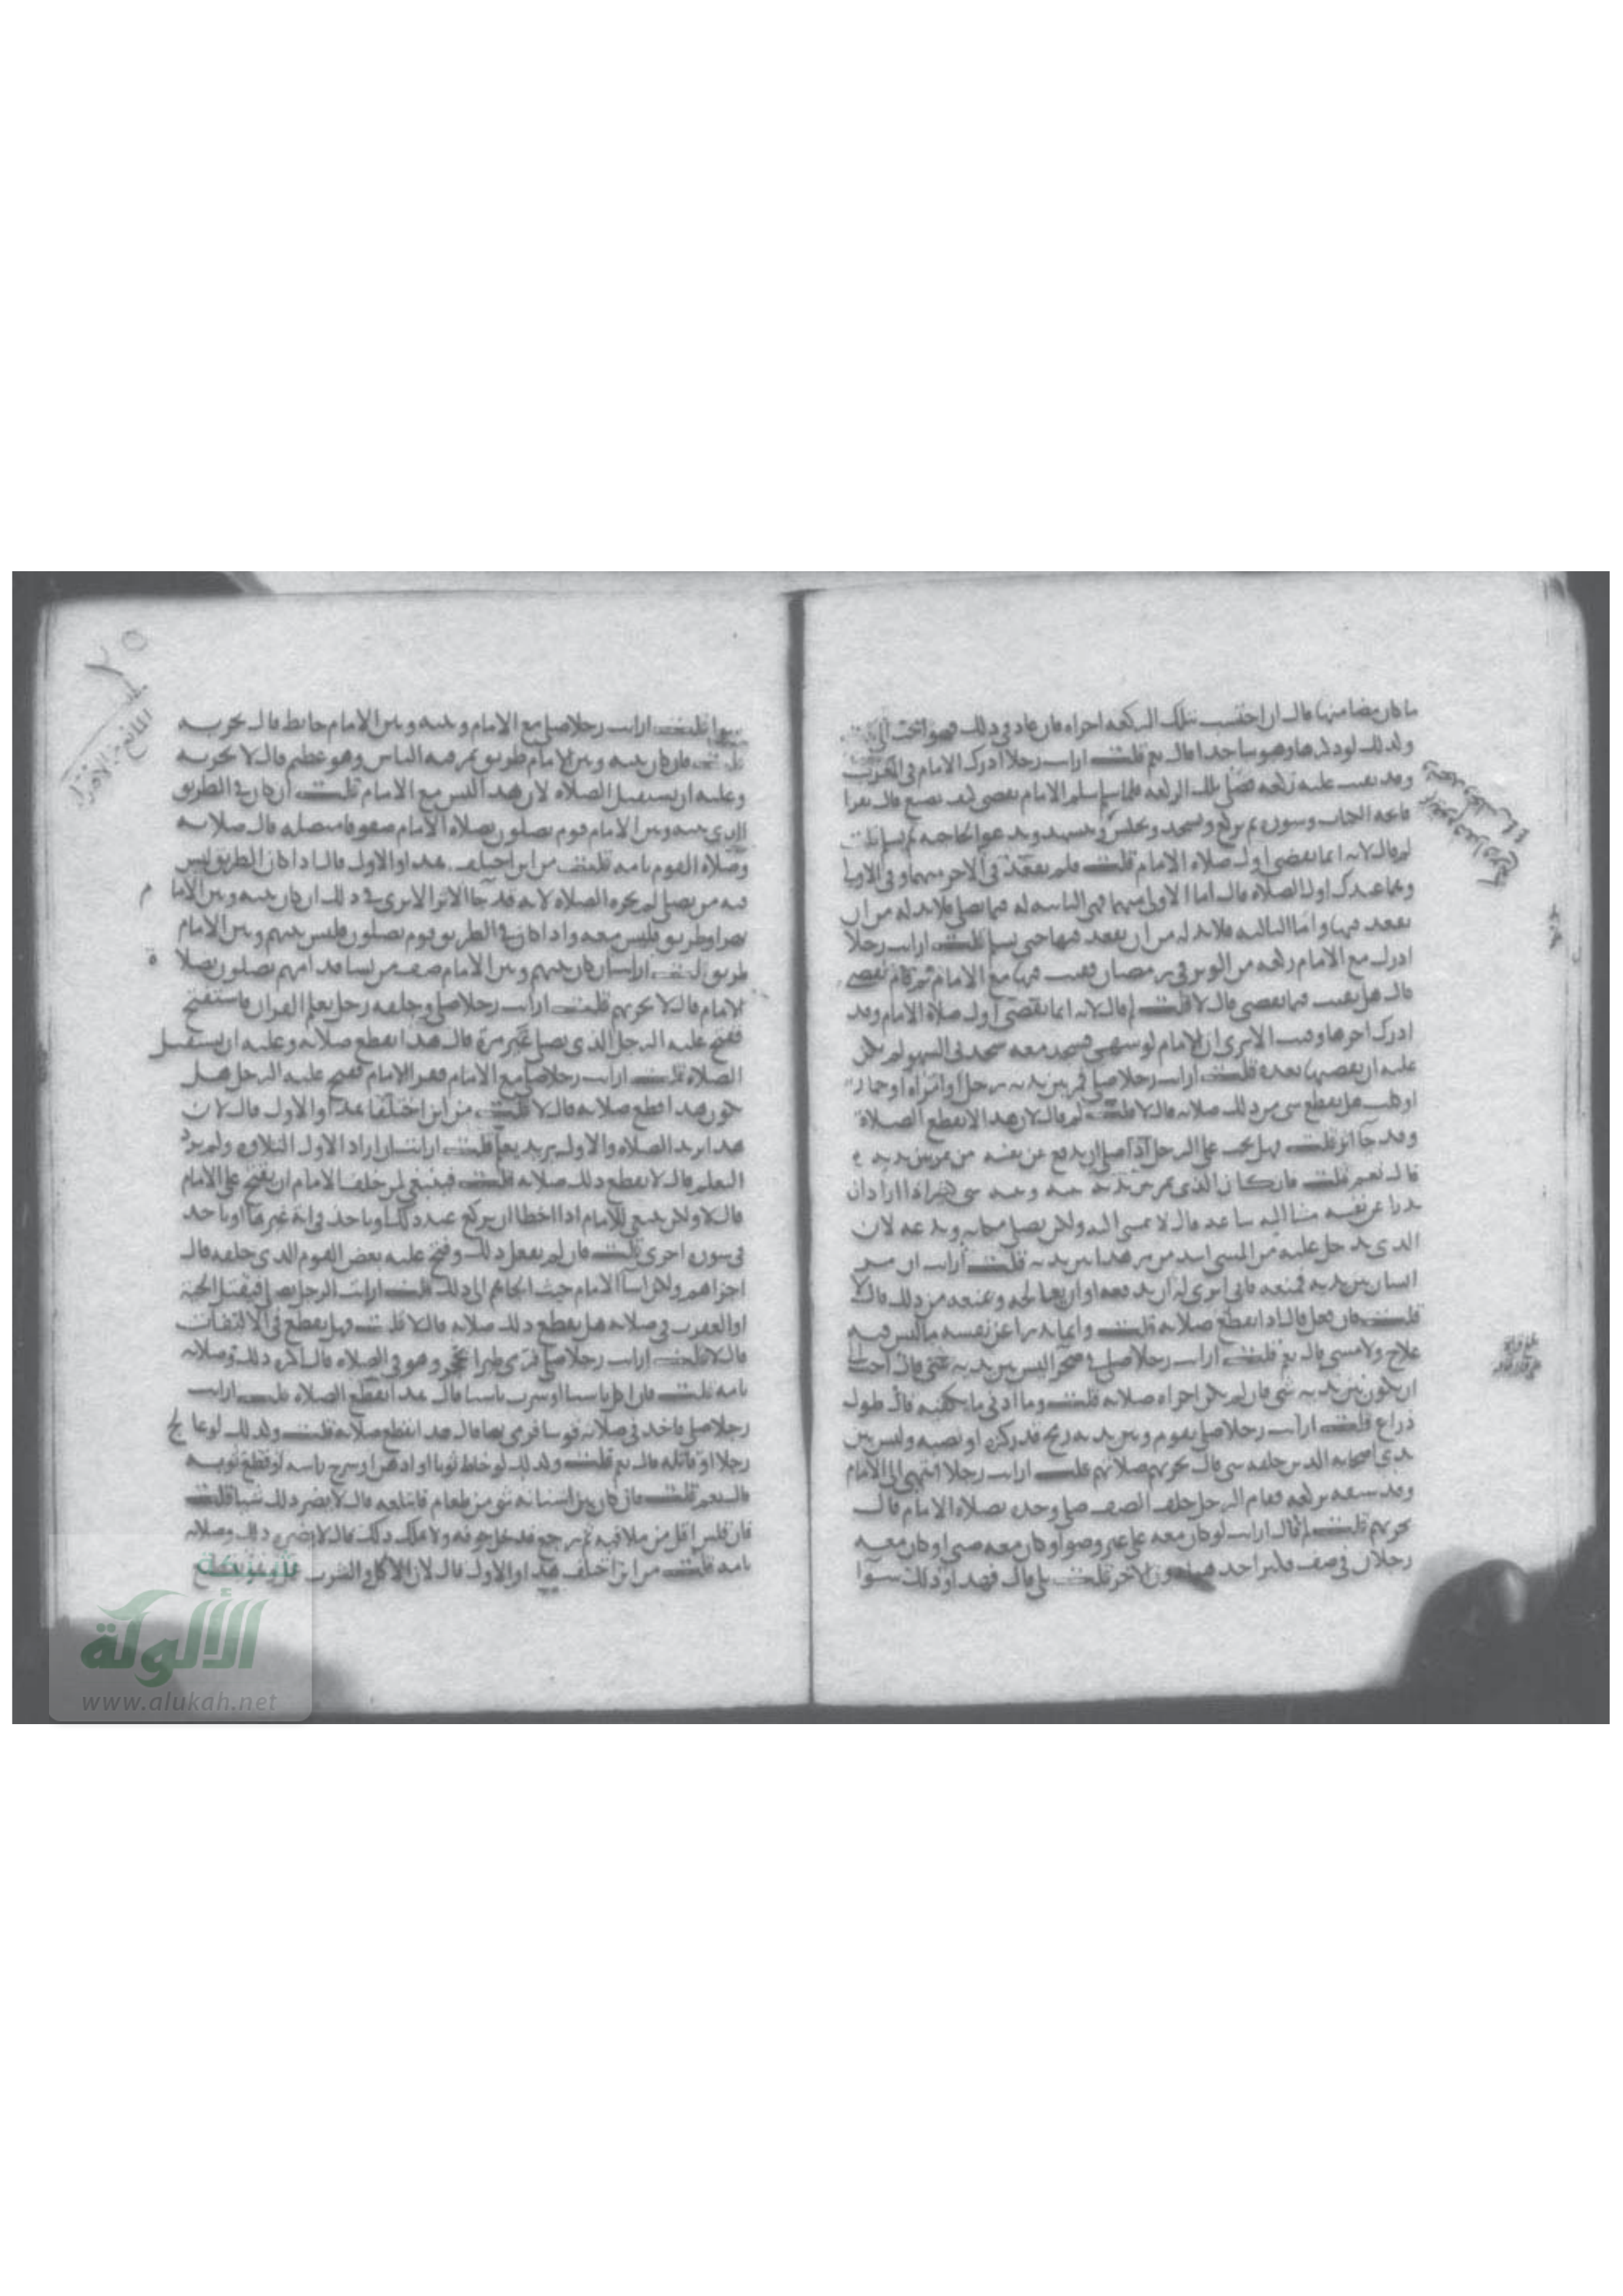 ما كان مضا منها قال ان احتسب بتلك الركعه اجزاه فان عاد في ذلك فهو احب الي قلت
وكذلك لو ذكرها وهو ساجد قال نعم قلت ارايت رجلا ادرك الامام في المغرب
وقد بقيت عليه ركعه فصلى تلك الركعه فلما سلم الامام يقضي كيف يصنع قال يقرا
فاتحه الكتاب وسوره ثم يركع ويسجد ويجلس ويتشهد ويدعو الحاجه ثم يسلم قلت
لم قال لانه انما يقضي اول صلاه الامام قلت فلم يقعد في
وهما عندك اول الصلاه قال اما الاولى منهما فهي الثانيه له فيما يصلي فلا بد له من ان
يقعد فيها واما الثالثه فلا بد له من ان يقعد فيها حتى يسلم قلت ارايت رجلا
ادرك مع الامام ركعه من الوتر في رمضان فقنت فيها مع الامام ثم قام يقضي
قال هل يقنت فيما يقضي قال لا قلت لم قال لانه انما يقضي اول صلاة الامام وقد
ادرك اخرها وقنت الا ترى ان الامام لو سهى فسجد معه سجدتي السهو لم يكن
عليه ان يقضيها بعده قلت ارايت رجلا صلى فمر بين يديه رجل او امراه او حمار
او كلب هل يقطع شي من ذلك صلاته قال لا قلت لم قال لان هذا لا يقطع الصلاة
وقد جا اثر قلت فهل يجب على الرجل اذا صلى ان يدفع عن نفسه من يمر بين يديه
قال نعم قلت فان كان الذي يمر بين يديه بينه وبينه شي اراد ان
يدرا عن نفسه مشا اليه ساعه قال لا يمشي اليه ولكن يصلي مكانه ويدعه لان
الذي يدخل عليه من المشي اشد من مر هذا بين يديه قلت ارايت ان مر
انسان بين يديه فمنعه فابى اترى له ان يدفعه او ان يعالجه ويمنعه من ذلك قال لا
قلت فان فعل قال اذا يقطع صلاته قلت وانما يدرا عن نفسه ما ليس فيه
علاج ولا مشي قال نعم قلت ارايت رجلا صلى في صحرا ليس بين يديه شي قال احب الي
ان يكون بين يديه شي فان لم يكن اجزاه صلاته قلت وما ادنى ما يكفيه قال طول
ذراع قلت ارايت رجلا صلى بقوم وبين يديه رمح قد ركزه او نصبه وليس بين
يدي اصحابه الذين خلفه شي قال يجزيهم صلاتهم قلت ارايت رجلا انتهى الى الامام
وقد سبقه بركعه فقام الرجل خلف الصف صلى وحده بصلاه الامام قال
يجزيهم قلت لم قال ارايت لو كان معه على غير وضو او كان معه صبي او كان معه
رجلان في صف فكبر احدهما دون الاخر قلت بلى قال فهذا وذلك سوا
سوا قلت ارايت رجلا صلى مع الامام وبينه وبين الامام حايط قال يجزيه
قلت فان كان بينه وبين الامام طريق يمر فيه الناس وهو عظيم قال لا يجزيه
وعليه ان يستقبل الصلاه لان هذا ليس مع الامام قلت ان كان في الطريق
الذي بينه وبين الامام قوم يصلون بصلاه الامام صفوفا متصله قال صلاته
وصلاه القوم تامه قلت من اين اختلف هذا والاول قال اذا كان الطريق ليس
فيه من يصلي لم يجزه الصلاه لانه قد جا الاثر الا ترى في ذلك ان كان بينه وبين الاما م
نهر او طريق فليس معه واذا كان في الطريق قوم يصلون فليس بينهم وبين الامام
طريق قلت ارايت ان كان بينهم وبين الامام صف من نسا قد امهم يصلون بصلا ة
الامام قال لا يجزيهم قلت ارايت رجلا صلى وخلفه رجل يعلم القران فاستفتح
ففتح عليه الرجل الذي يصلي غير مرة قال هذا يقطع صلاته وعليه ان يستقبل
الصلاه قلت ارايت رجلا صلى مع الامام فقرا الامام ففتح عليه الرجل هل
يكون هذا قطع صلاته قال لا قلت من اين اختلفا هذا والاول قال لان
هذا يريد الصلاه والاول يريد يعلم قلت ارايت ان اراد الاول التلاوه ولم يرد
التعليم قال لا يقطع ذلك صلاته قلت فينبغي لمن خلف الامام ان يفتح على الامام
قال لا ولكن ينبغي للامام اذا اخطا ان يركع عند ذلك او ياخذ في اية غيرها او ياخذ
في سوره اخرى قلت فان لم يفعل ذلك وفتح عليه بعض القوم الذي خلفه قال
اجزاهم ولكن اسا الامام حيث الجاهم الى ذلك قلت ارايت الرجل يصلي فيقتل الحية
او العقرب في صلاته هل يقطع ذلك صلاته قال لا قلت فهل يقطع في الالتفات
قال لا قلت ارايت رجلا صلى فرمى طيرا بحجر وهو في الصلاه قال اكره ذلك وصلاته
تامه قلت فان اكل ناسيا او شرب ناسيا قال هذا يقطع الصلاه قلت ارايت
رجلا صلى فاخذ في صلاته قوسا فرمى بها قال هذا يقطع صلاته قلت وكذلك لو عا لج
رجلا او قاتله قال نعم قلت وكذلك لو خاط ثوبا او ادهن او سرح راسه او قطع ثوبه
قال نعم قلت فان كان بين اسنانه شي من طعام فابتلعه قال لا يضر ذلك شيا قلت
فان قلس اقل من ملا فيه ثم رجع فدخل جوفه ولا يملك ذلك قال لا يضره ذلك وصلاته
تامه قلت من اين اختلف هذا والاول قال لان الاكل والشرب عمل يقطع
الألوكة
www.alukah.net